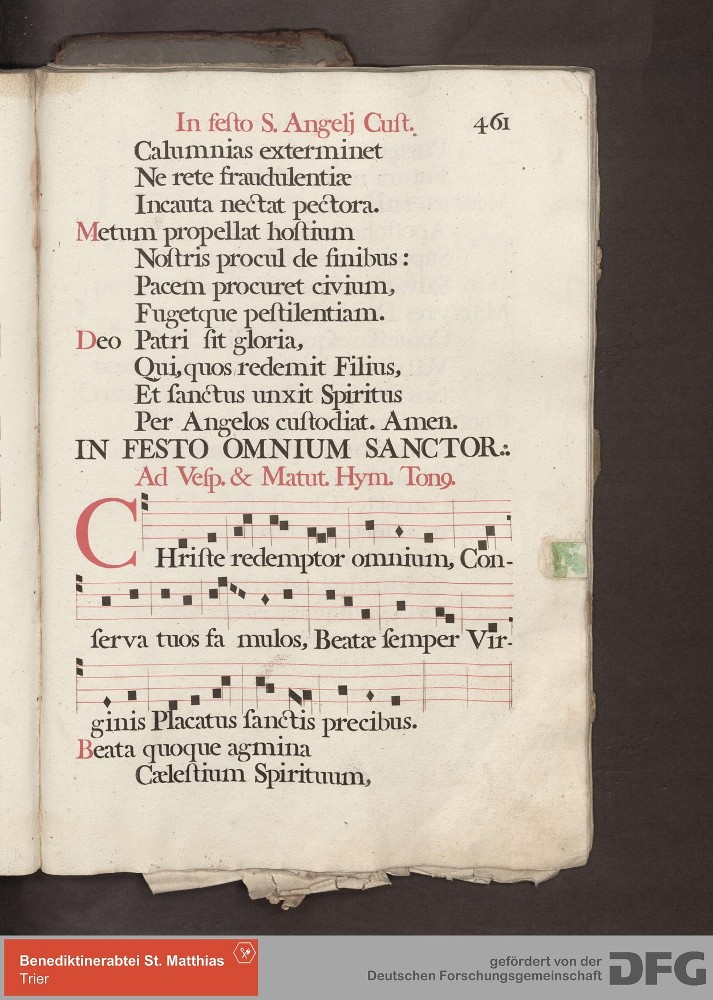 In feſto S. Angelj Cuſt. 461
Calumnias exterminet
Ne rete fraudulentiæ
Incauta nectat pectora.
Metum propellat hoſtium
Noſtris procul de finibus :
Pacem procuret civium,
Fugetque peſtilentiam.
Deo Patri ſit gloria,
Qui, quos redemit Filius,
Et ſanctus unxit Spiritus
Per Angelos cuſtodiat. Amen.
IN FESTO OMNIUM SANCTOR.:.
Ad Veſp. & Matut. Hym. Tonꝰ.
CHriſte redemptor omnium, Con-
ſerva tuos fa mulos, Beatæ ſemper Vir-
ginis Placatus ſanctis precibus.
Beata quoque agmina
Cæleſtium Spirituum,
Benediktinerabtei St. Matthias
Trier
gefördert von der
Deutschen Forschungsgemeinschaft DFG